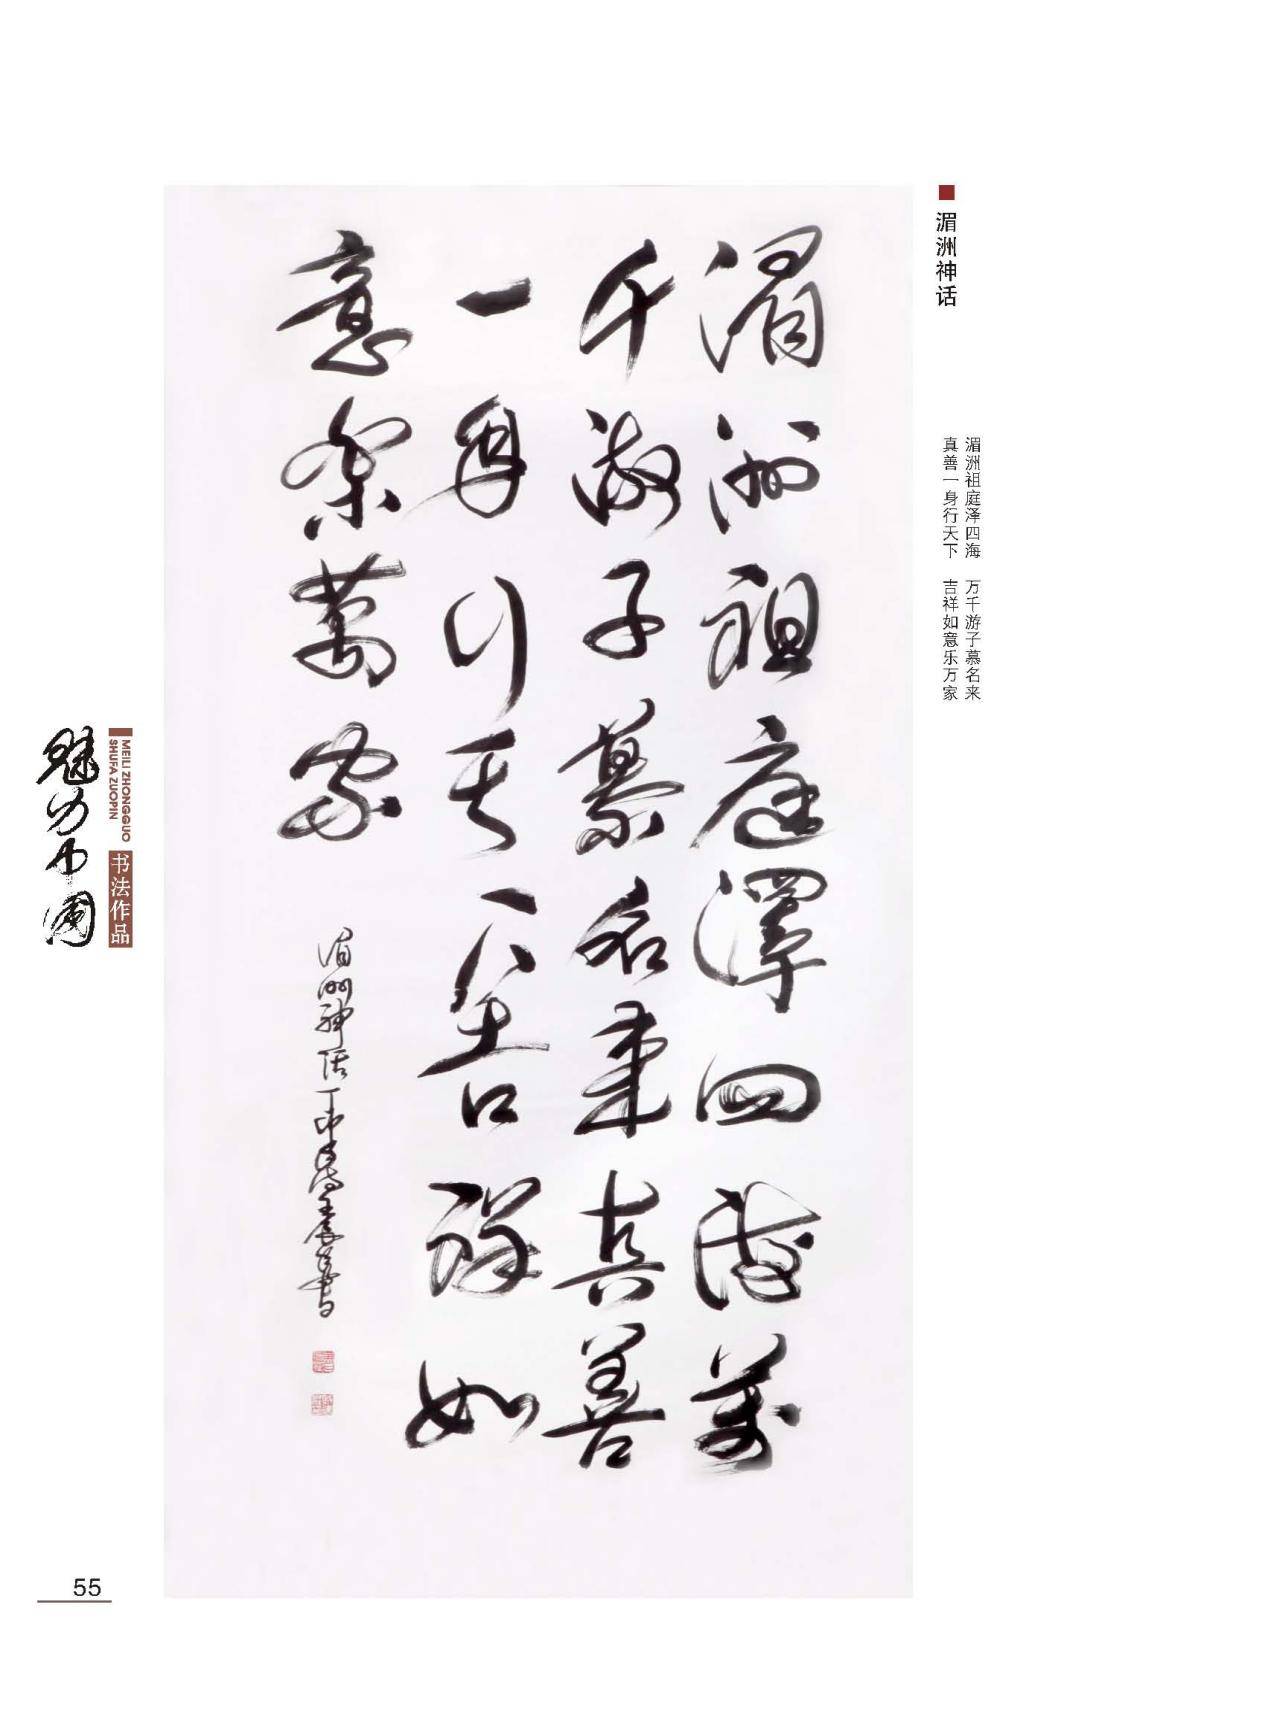 湄洲神话
湄洲祖庭泽四海 万千游子慕名来
真善一身行天下 吉祥如意乐万家
湄洲祖庭澤四海萬
千游子慕名来真善
一身行天下吉祥如
意樂萬家
湄洲神话 丁酉
書
魅力中国
MEILI ZHONGGUO
SHUFA ZUOPIN
书法作品
55